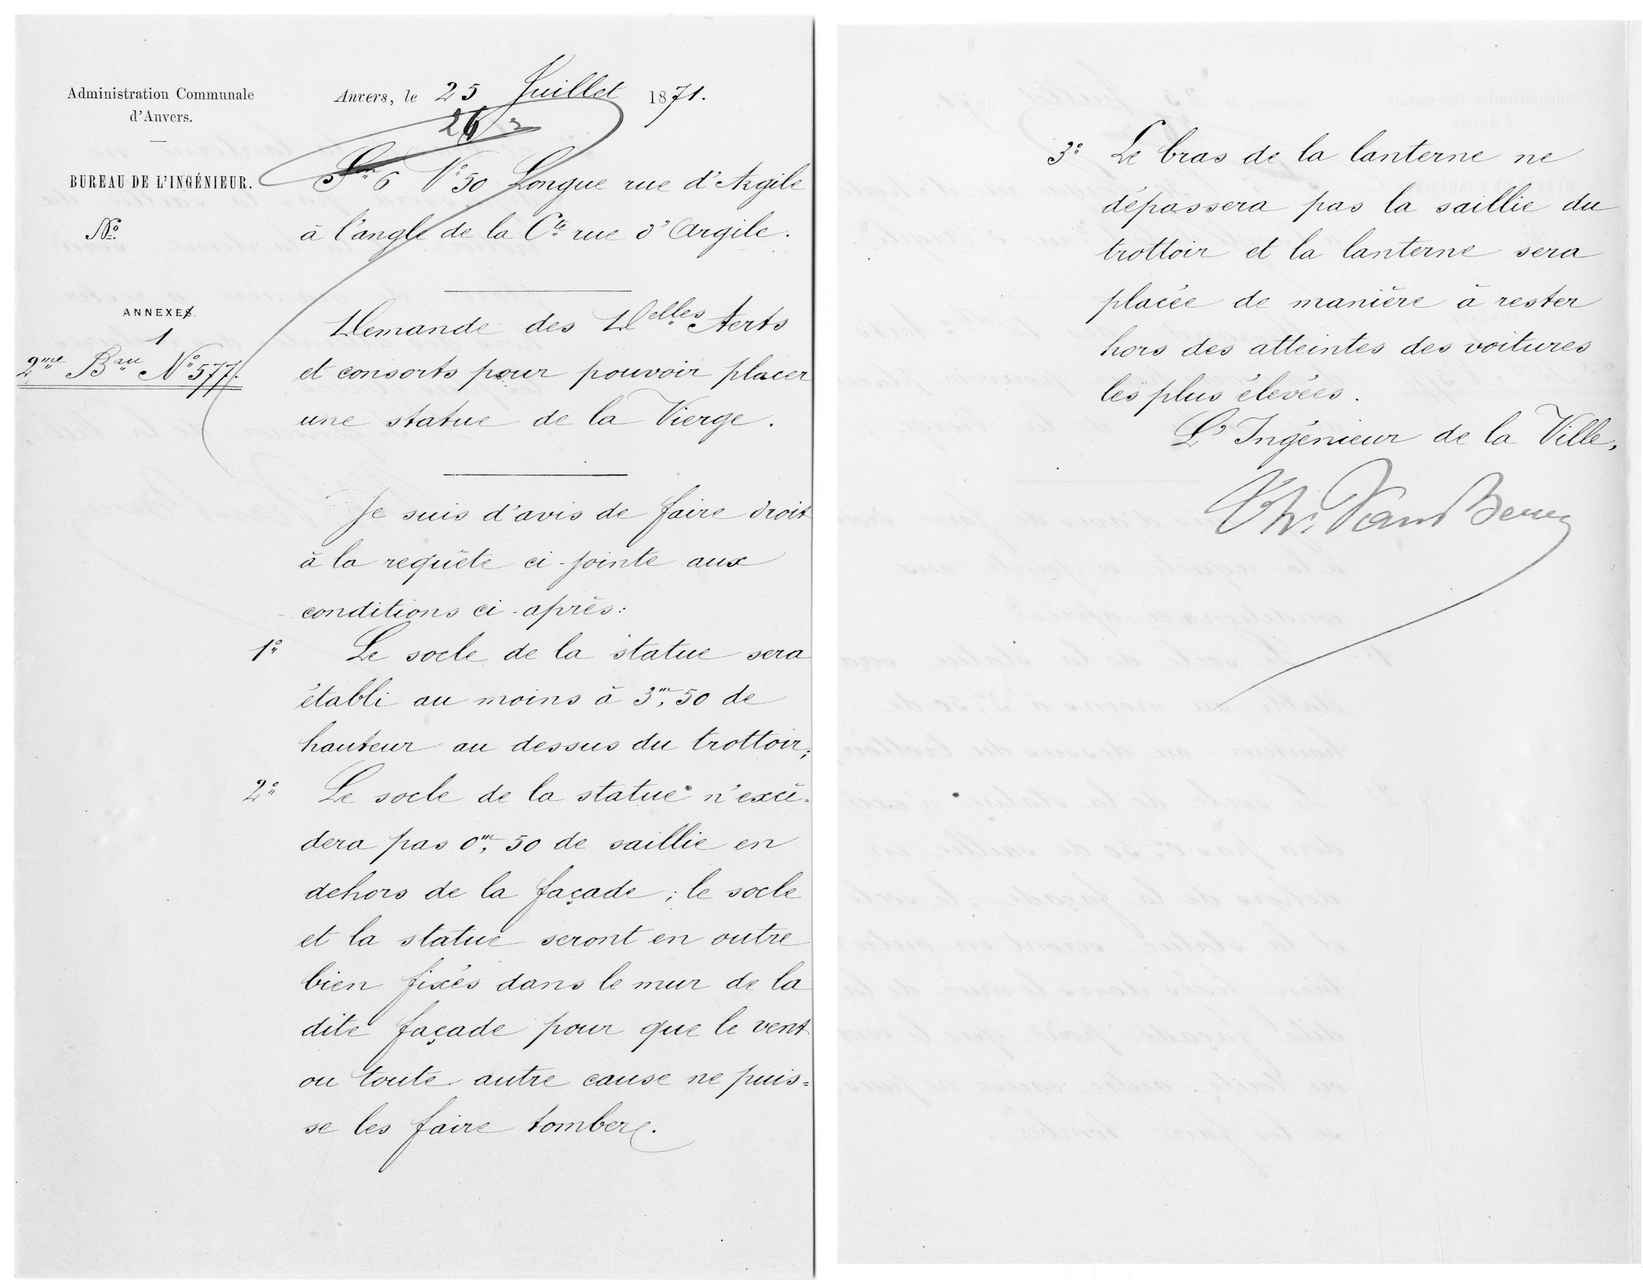 Administration Communale
d'Anvers.
BUREAU DE L'INGÉNIEUR.
No.
ANNEXES.
1
2me Bau No 577.
Anvers, le 25 Juillet 1871.
26
Son 6 No 50 Longue rue d'Argile
à l'angle de la Cte rue d'Argile.
Demande des Delles Aerts
et consorts pour pouvoir placer
une statue de la Vierge.
Je suis d'avis de faire droit
à la requête ci-jointe aux
conditions ci-après:
1o Le socle de la statue sera
établi au moins à 3m,50 de
hauteur au dessus du trottoir;
2o Le socle de la statue n'excè-
dera pas 0m,50 de saillie en
dehors de la façade; le socle
et la statue seront en outre
bien fixés dans le mur de la
dite façade pour que le vent
ou toute autre cause ne puis=
se les faire tomber.
3o Le bras de la lanterne ne
dépassera pas la saillie du
trottoir et la lanterne sera
placée de manière à rester
hors des atteintes des voitures
les plus élevées.
L'Ingénieur de la Ville,